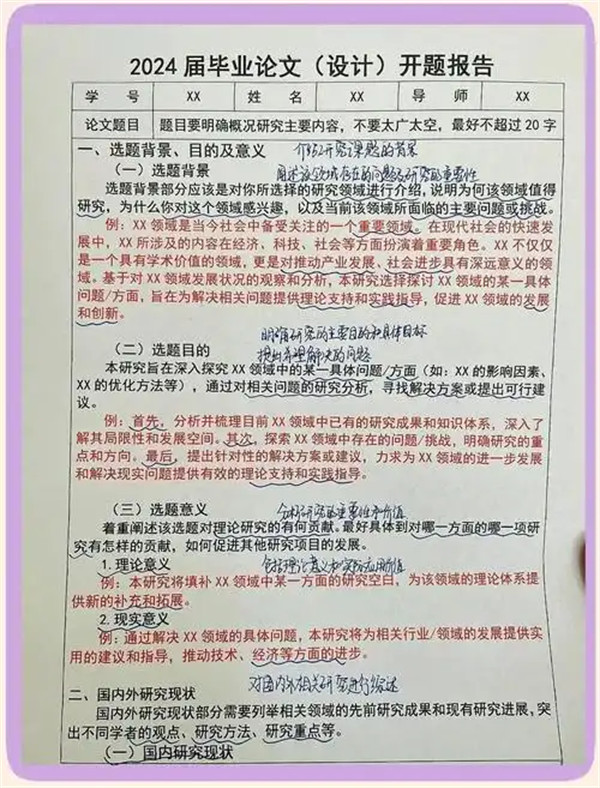 2024 届毕业论文（设计）开题报告
学 号 XX 姓 名 XX 导 师 XX
论文题目 题目要明确概况研究主要内容，不要太广太空，最好不超过 20 字
一、选题背景、目的及意义 介绍研究课题的背景
（一）选题背景 阐述该领域存在的问题及研究的重要性
选题背景部分应该是对你所选择的研究领域进行介绍，说明为何该领域值得
研究，为什么你对这个领域感兴趣，以及当前该领域所面临的主要问题或挑战。
例：XX 领域是当今社会中备受关注的一个重要领域。在现代社会的快速发
展中，XX 所涉及的内容在经济、科技、社会等方面扮演着重要角色。XX 不仅仅
是一个具有学术价值的领域，更是对推动产业发展、社会进步具有深远意义的领
域。基于对 XX 领域发展状况的观察和分析，本研究选择探讨 XX 领域的某一具体
问题/方面，旨在为解决相关问题提供理论支持和实践指导，促进 XX 领域的发展
和创新。
明确研究的主要目的和具体目标
（二）选题目的 提出希望解决的问题
本研究旨在深入探究 XX 领域中的某一具体问题/方面（如：XX 的影响因素、
XX 的优化方法等），通过对相关问题的研究分析，寻找解决方案或提出可行建
议。
例：首先，分析并梳理目前 XX 领域中已有的研究成果和知识体系，深入了
解其局限性和发展空间。其次，探索 XX 领域中存在的问题/挑战，明确研究的重
点和方向。最后，提出针对性的解决方案或建议，力求为 XX 领域的进一步发展
和解决现实问题提供有效的理论支持和实践指导。
（三）选题意义 分析研究的重要性和价值
着重阐述该选题对理论研究的有何贡献。最好具体到对哪一方面的哪一项研
究有怎样的贡献，如何促进其他研究项目的发展。
1. 理论意义 包括理论意义和实际应用价值
例：本研究将填补 XX 领域中某一方面的研究空白，为该领域的理论体系提
供新的补充和拓展。
2. 现实意义
例：通过解决 XX 领域的具体问题，本研究将为相关行业/领域的发展提供实
用的建议和指导，推动技术、经济等方面的进步。
二、国内外研究现状 对国内外相关研究进行综述
国内外研究现状部分需要列举相关领域的先前研究成果和现有研究进展，突
出不同学者的观点、研究方法、研究重点等。
（一）国内研究现状